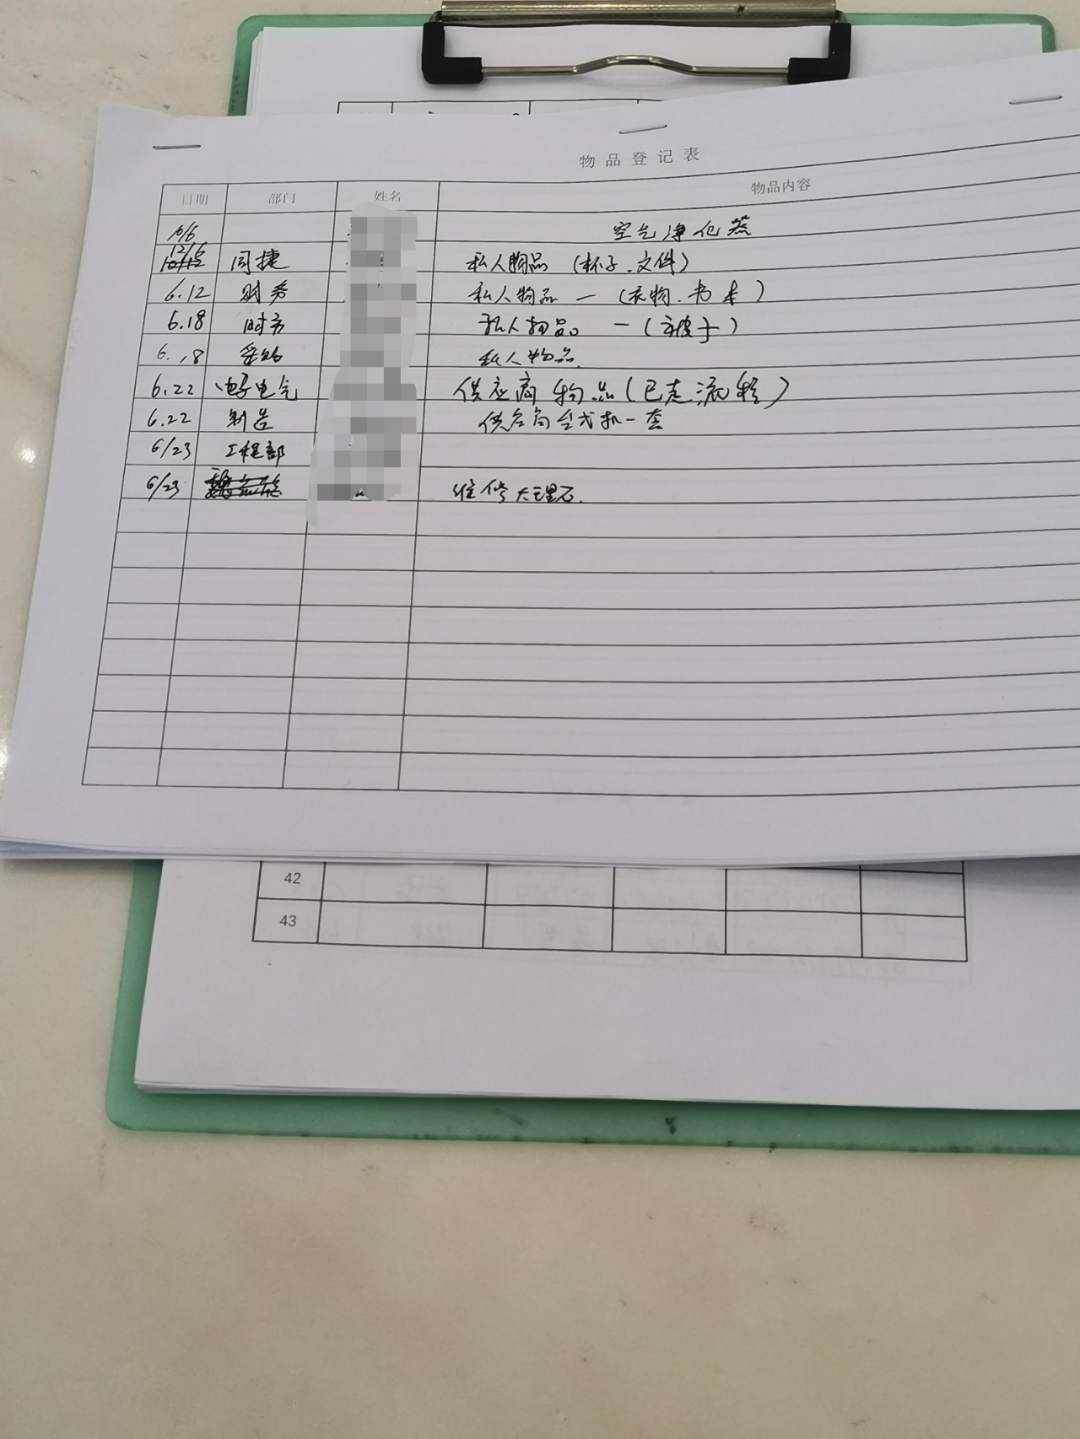 物品登记表
日期 部门 姓名 物品内容
空气净化器
12/6 同捷 私人物品 (杯子.文件)
6.12 财务 私人物品 — (衣物.书本)
6.18 财务 私人物品 — (被子)
6.18 私人物品.
6.22 电子电气 供应商物品(已走流程)
6.22 制造 供应商台式机一套
6/23 工程部
6/23 维修大理石.
42
43